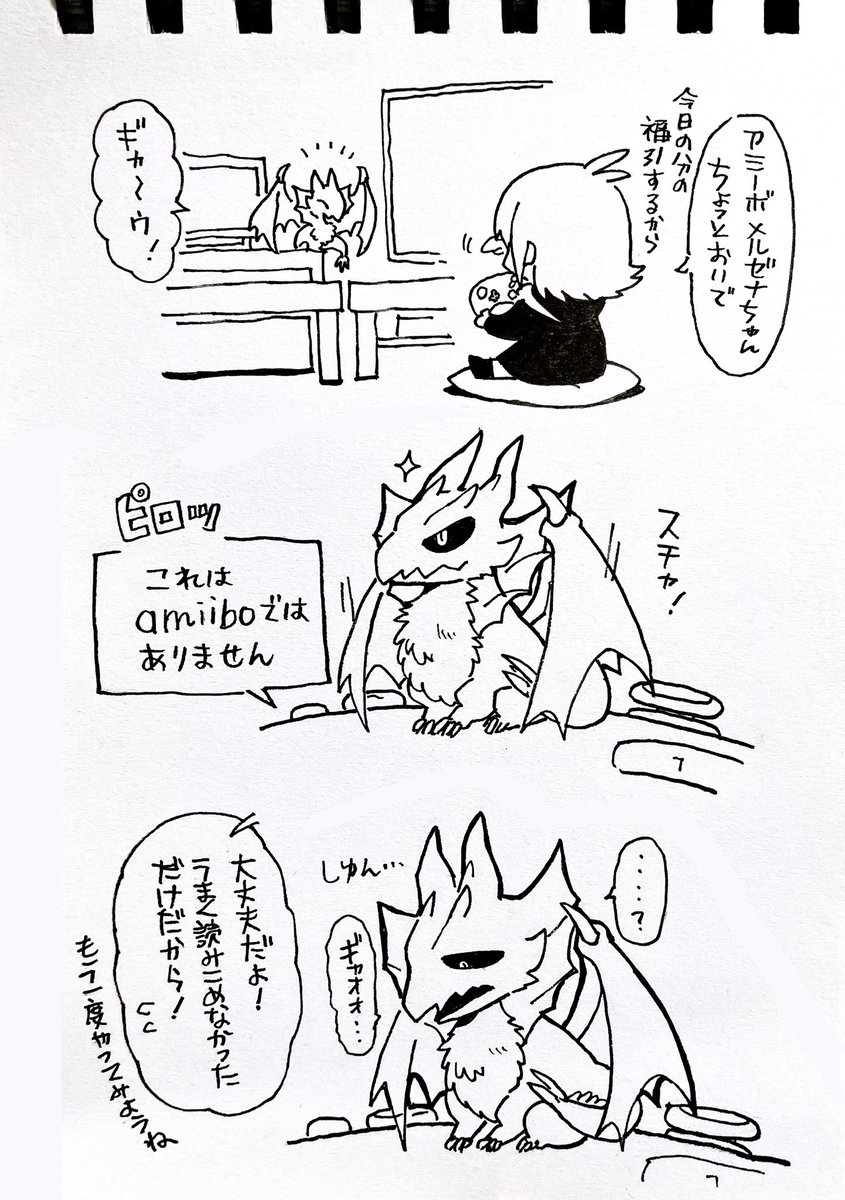 アミーボ メルゼナちゃん
ちょっとおいで
今日の分の
福引するから
ギャ〜ウ!
スチャ!
ピロッ
これは
amiiboでは
ありません
・・・・?
しゅん…
ギャオォ・・・
大丈夫だよ!
うまく読みこめなかった
だけだから!
もう一度やってみようね